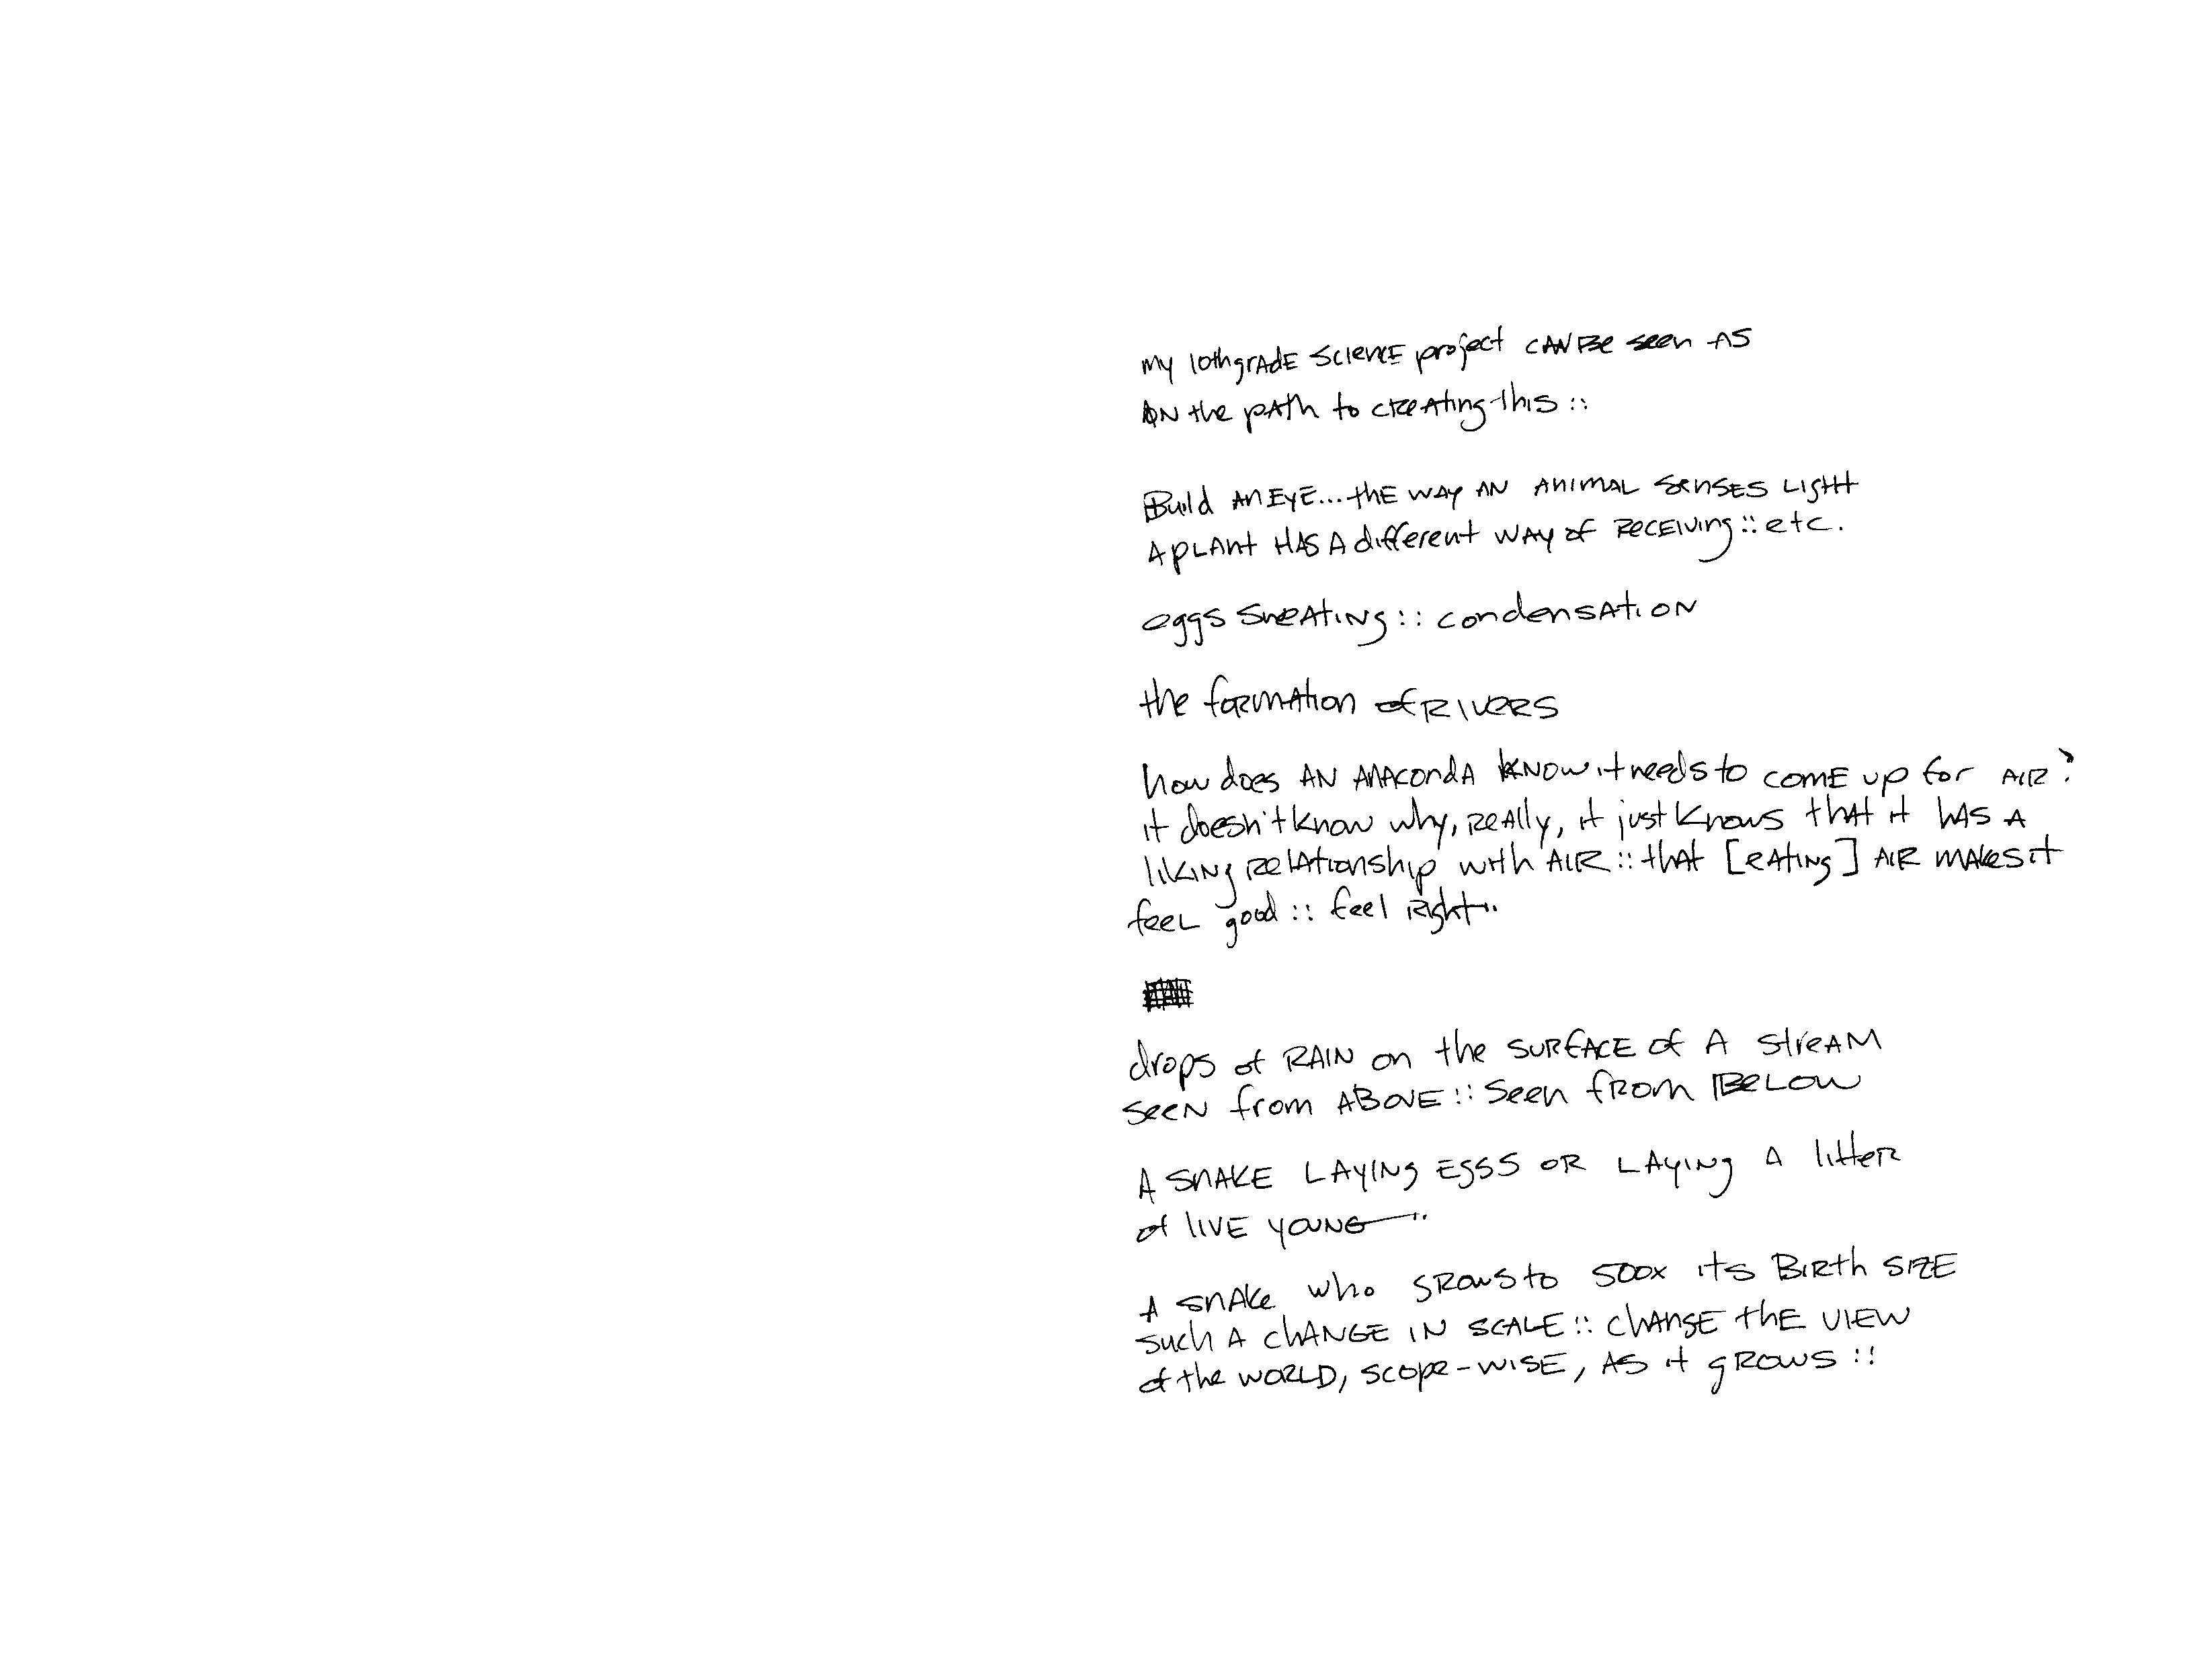 my 10th grade science project can be seen as
on the path to creating this ::
Build an eye... the way an animal senses light
a plant has a different way of receiving :: etc.
eggs sweating :: condensation
the formation of rivers
how does an anaconda know it needs to come up for air?
it doesn't know why, really, it just knows that it has a
liking relationship with air :: that [eating] air makes it
feel good :: feel right ..
drops of rain on the surface of a stream
seen from above :: seen from below
A snake laying eggs or laying a litter
of live young ..
A snake who grows to 500x its birth size
such a change in scale :: change the view
of the world, scope-wise, as it grows ::